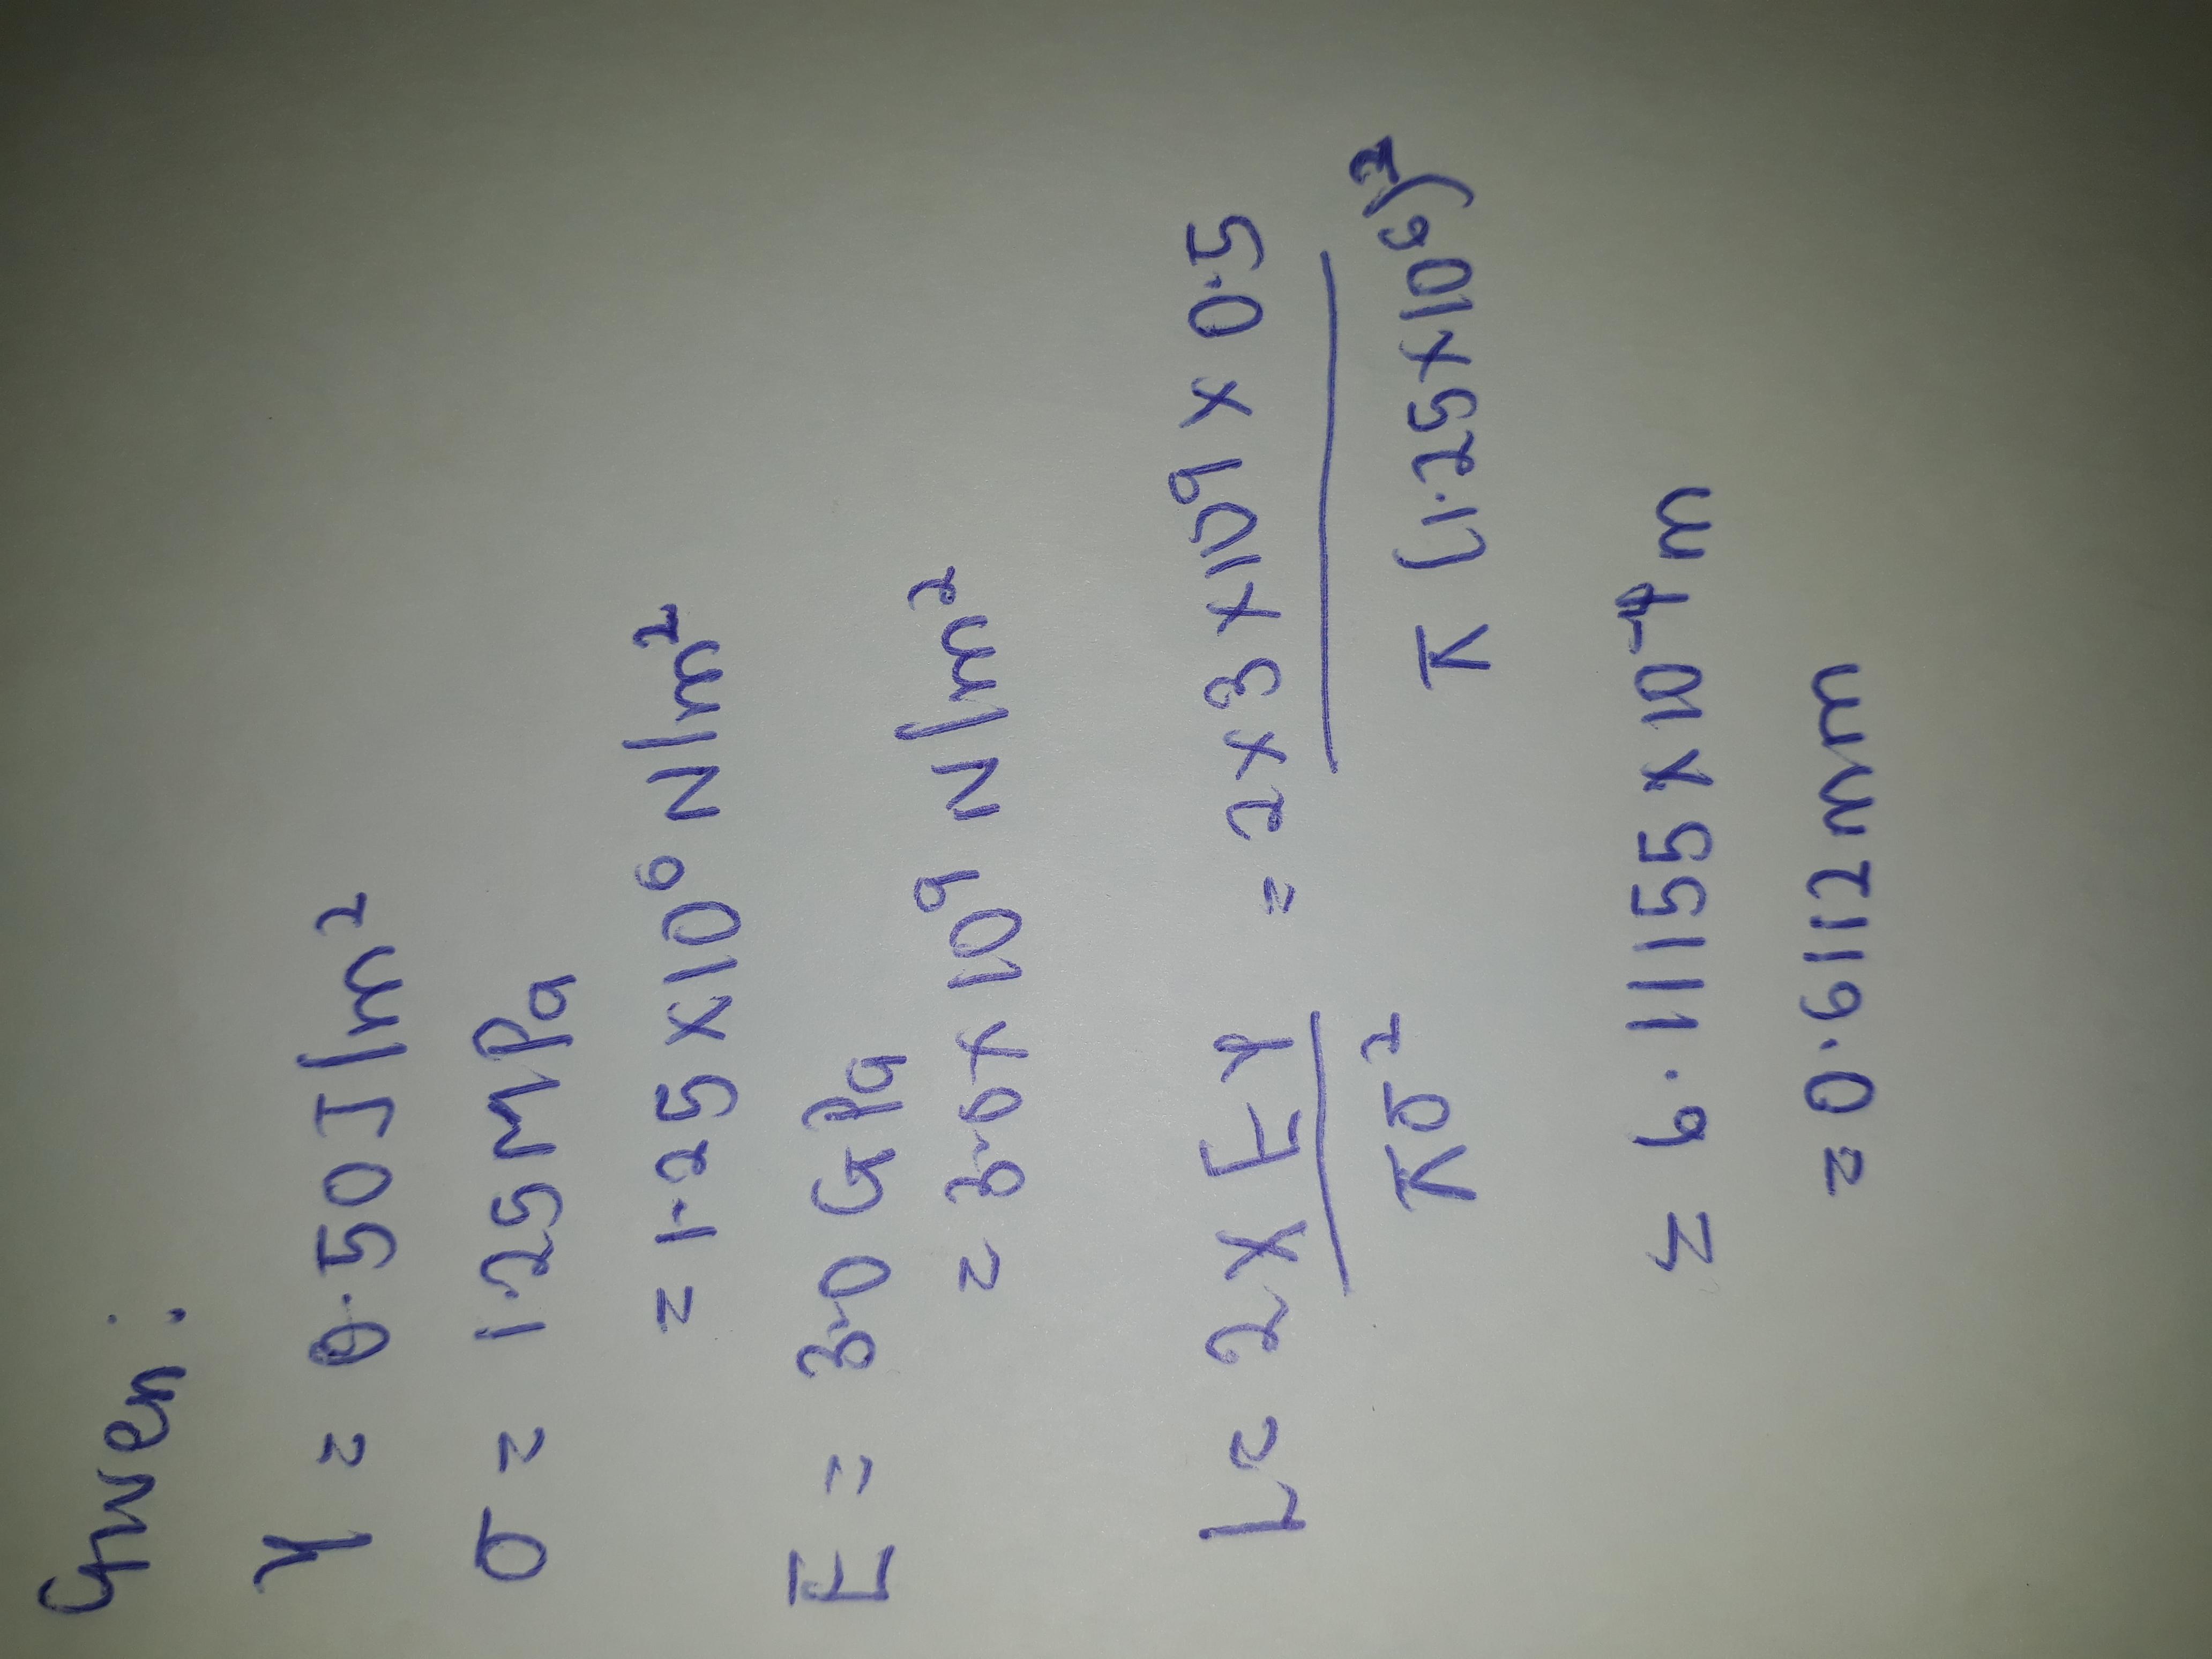 Given:
γ = 0.50 J/m²
σ = 1.25 MPa
= 1.25 X 10⁶ N/m²
E = 3.0 GPa
= 3.0 x 10⁹ N/m²
L = 2 X E γ / π σ² = 2 x 3 x 10⁹ x 0.5 / π (1.25 x 10⁶)²
= 6.11155 x 10⁻⁴ m
= 0.6112 mm